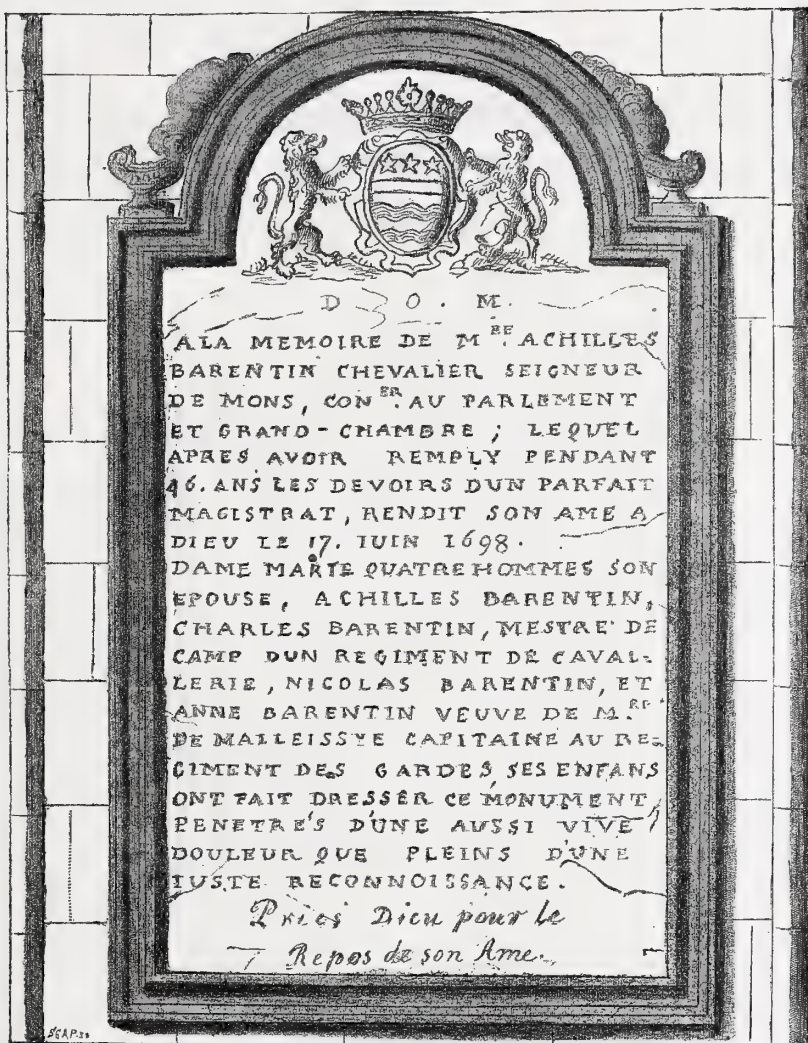 D . O . M .
A LA MEMOIRE DE M.RE ACHILLES
BARENTIN CHEVALIER SEIGNEUR
DE MONS, CON.ER AU PARLEMENT
ET GRAND-CHAMBRE ; LEQUEL
APRES AVOIR REMPLY PENDANT
46. ANS LES DEVOIRS DUN PARFAIT
MAGISTRAT, RENDIT SON AME A
DIEU LE 17. IUIN 1698.
DAME MARIE QUATREHOMMES SON
EPOUSE, ACHILLES BARENTIN,
CHARLES BARENTIN, MESTRE DE
CAMP DUN REGIMENT DE CAVAL-
LERIE, NICOLAS BARENTIN, ET
ANNE BARENTIN VEUVE DE M.RE
DE MALLEISSYE CAPITAINE AU RE-
GIMENT DES GARDES, SES ENFANS
ONT FAIT DRESSER CE MONUMENT,
PENETRE'S D'UNE AUSSI VIVE
DOULEUR QUE PLEINS D'UNE
IUSTE RECONNOISSANCE.
Priés Dieu pour le
Repos de son Ame.